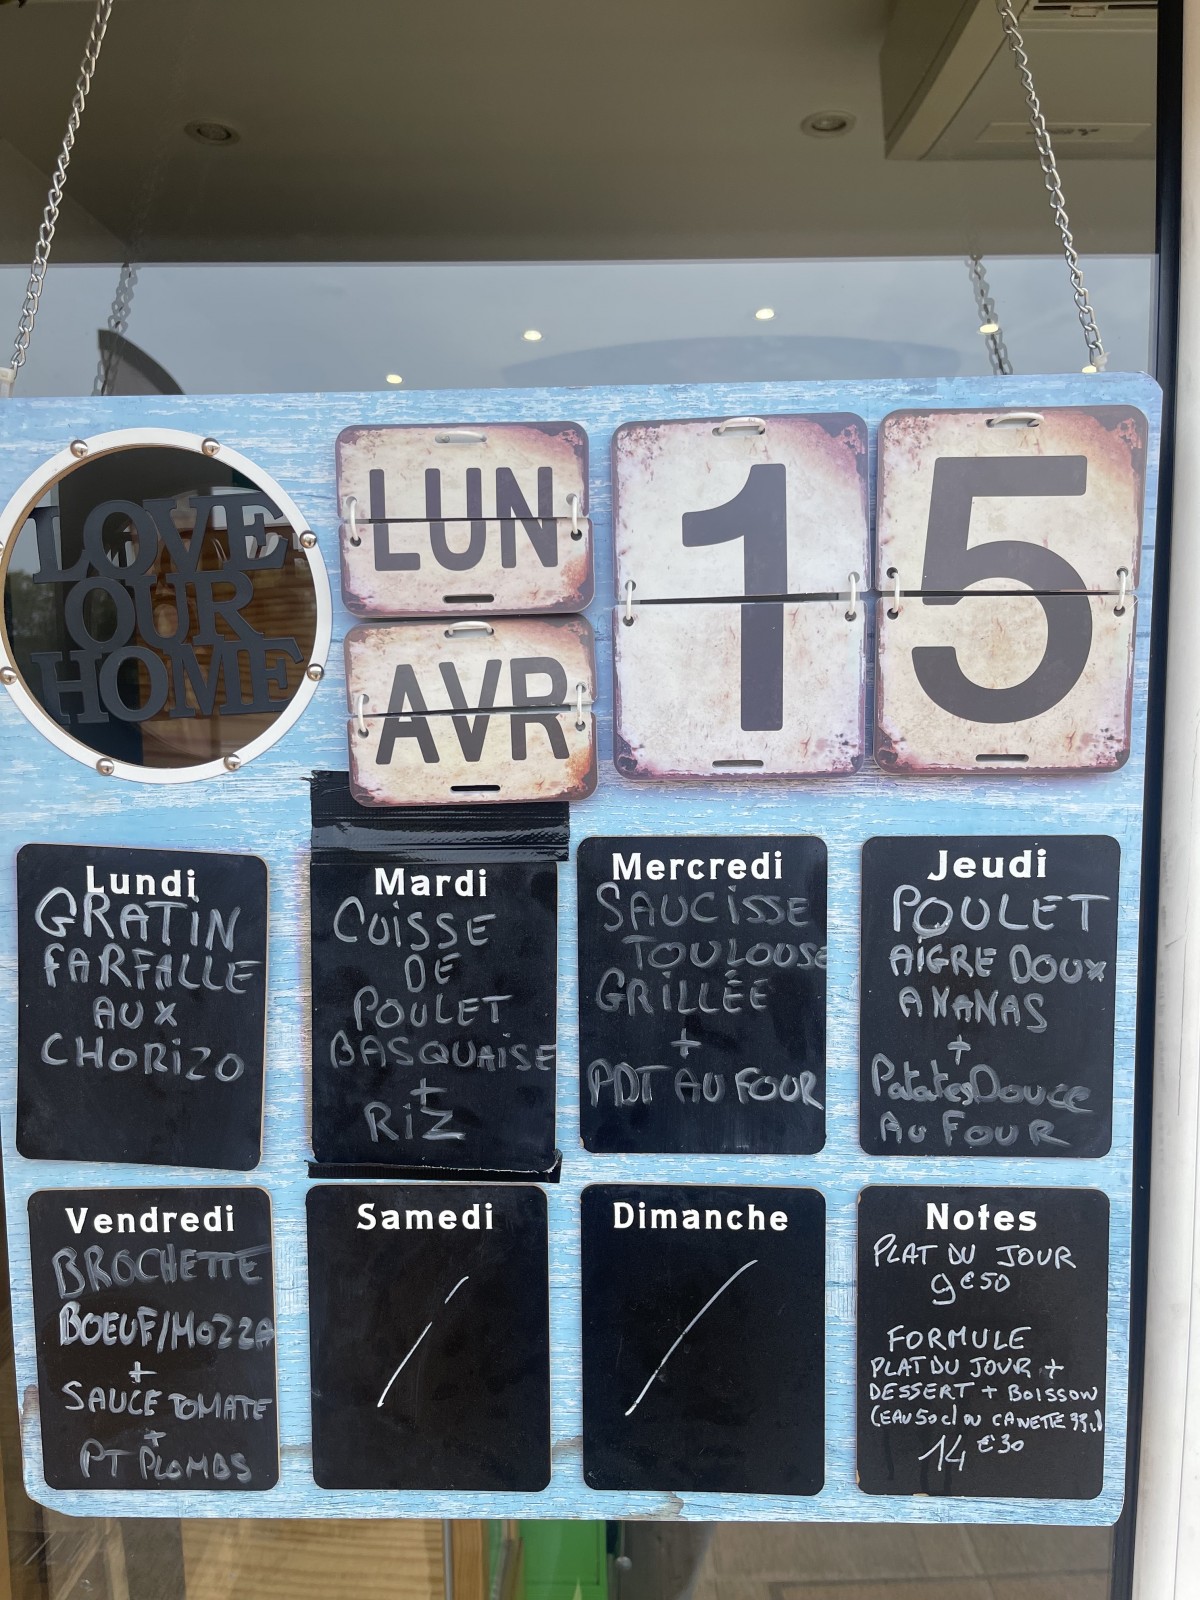 LOVE
OUR
HOME
LUN
AVR
15
Lundi
GRATIN
FARFALLE
AUX
CHORIZO
Mardi
CUISSE
DE
POULET
BASQUAISE
+
RIZ
Mercredi
SAUCISSE
TOULOUSE
GRILLÉE
+
PDT AU FOUR
Jeudi
POULET
AIGRE DOUX
ANANAS
+
Patates Douce
Au FOUR
Vendredi
BROCHETTE
BOEUF/MOZZA
+
SAUCE TOMATE
+
PT PLOMBS
Samedi
Dimanche
Notes
PLAT DU JOUR
9€50
FORMULE
PLAT DU JOUR +
DESSERT + BOISSON
(EAU 50cl OU CANETTE 33cl)
14€30